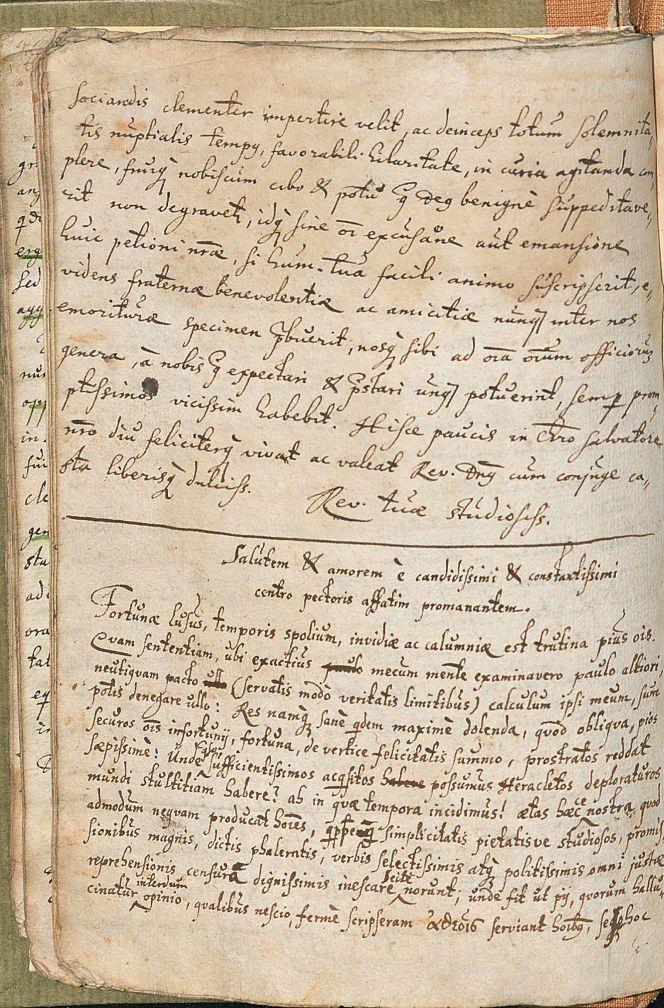 sociandis clementer impertire velit, ac deinceps totum solemnita-
tis nuptialis tempꝰ, favorabili hilaritate, in curia agitanda com-
plere, fruiq; nobiscum cibo & potu q Deꝰ benignè suppeditave-
rit non degravetr, idq; sine oi excusaõne aut emansione
huic petioni nr̃æ, si hum. tua facili animo suscripserit, e-
videns fraternæ benevolentiæ ac amicitiæ nunq; inter nos
emorituræ specimen p̱buerit, nosq; sibi ad oĩa oĩum officiorum
genera, à nobis q expectari & p̱stari unq; potuerint, semp prom-
ptissimos vicissim habebit. Hisce paucis in Chr̃o salvatore
nr̃o diu feliciterq; vivat ac valeat Rev. Dnꝰ cum conjuge ca-
sta liberisq; dulciss.
Rev. tuæ studiosiss.
Salutem & amorem è candidissimi & constantissimi
centro pectoris affatim promanantem.
Fortunæ lusus, temporis spolium, invidiæ ac calumniæ est trutina pius ois.
Qvam sententiam, ubi exactius mecum mente examinavero paulo altiori,
neutiquam pacto (servatis modò veritatis limitibus) calculum ipsi meum, sum
potis denegare ullo: Res namq; sanè qdem maximè dolenda, qvod obliqva, pios
securos ois infortunij, fortuna, de vertice felicitatis summo, prostratos reddat
sæpissimè: Unde sufficientissimos acqsitos possumus Heraclitos deploraturos
mundi stultitiam habere? ah in qvæ tempora incidimus! ætas hæc nostra qvod
admodum neqvam producat hoies, simplicitatis pietatisve studiosos, promis-
sionibus magnis, dictis phaleratis, verbis selectissimis atq; politissimis omni justæ
reprehensionis censurâ dignissimis inescare scitè norunt; unde fit ut pij, qvorum hallu-
cinatur interdum opinio, qvalibus nescio, fermè scripseram serviant hoibꝰ, sed hoc